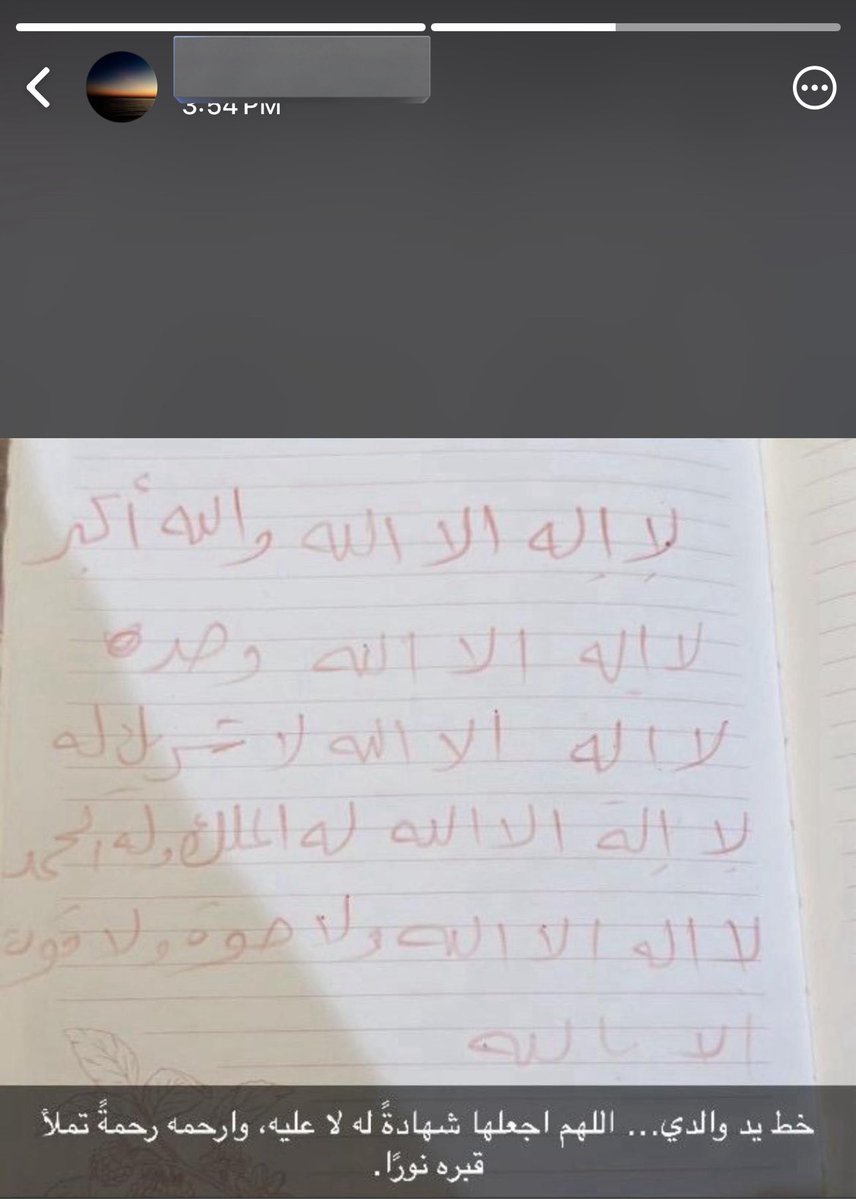 3:54 PM
لا إله الا الله والله أكبر
لا اله الا الله وحده
لا اله الا الله لا شريك له
لا إله الا الله له الملك وله الحمد
لا اله الا الله ولا حوة ولا قوة
الا بالله
خط يد والدي... اللهم اجعلها شهادةً له لا عليه، وارحمه رحمةً تملأ
قبره نورًا.